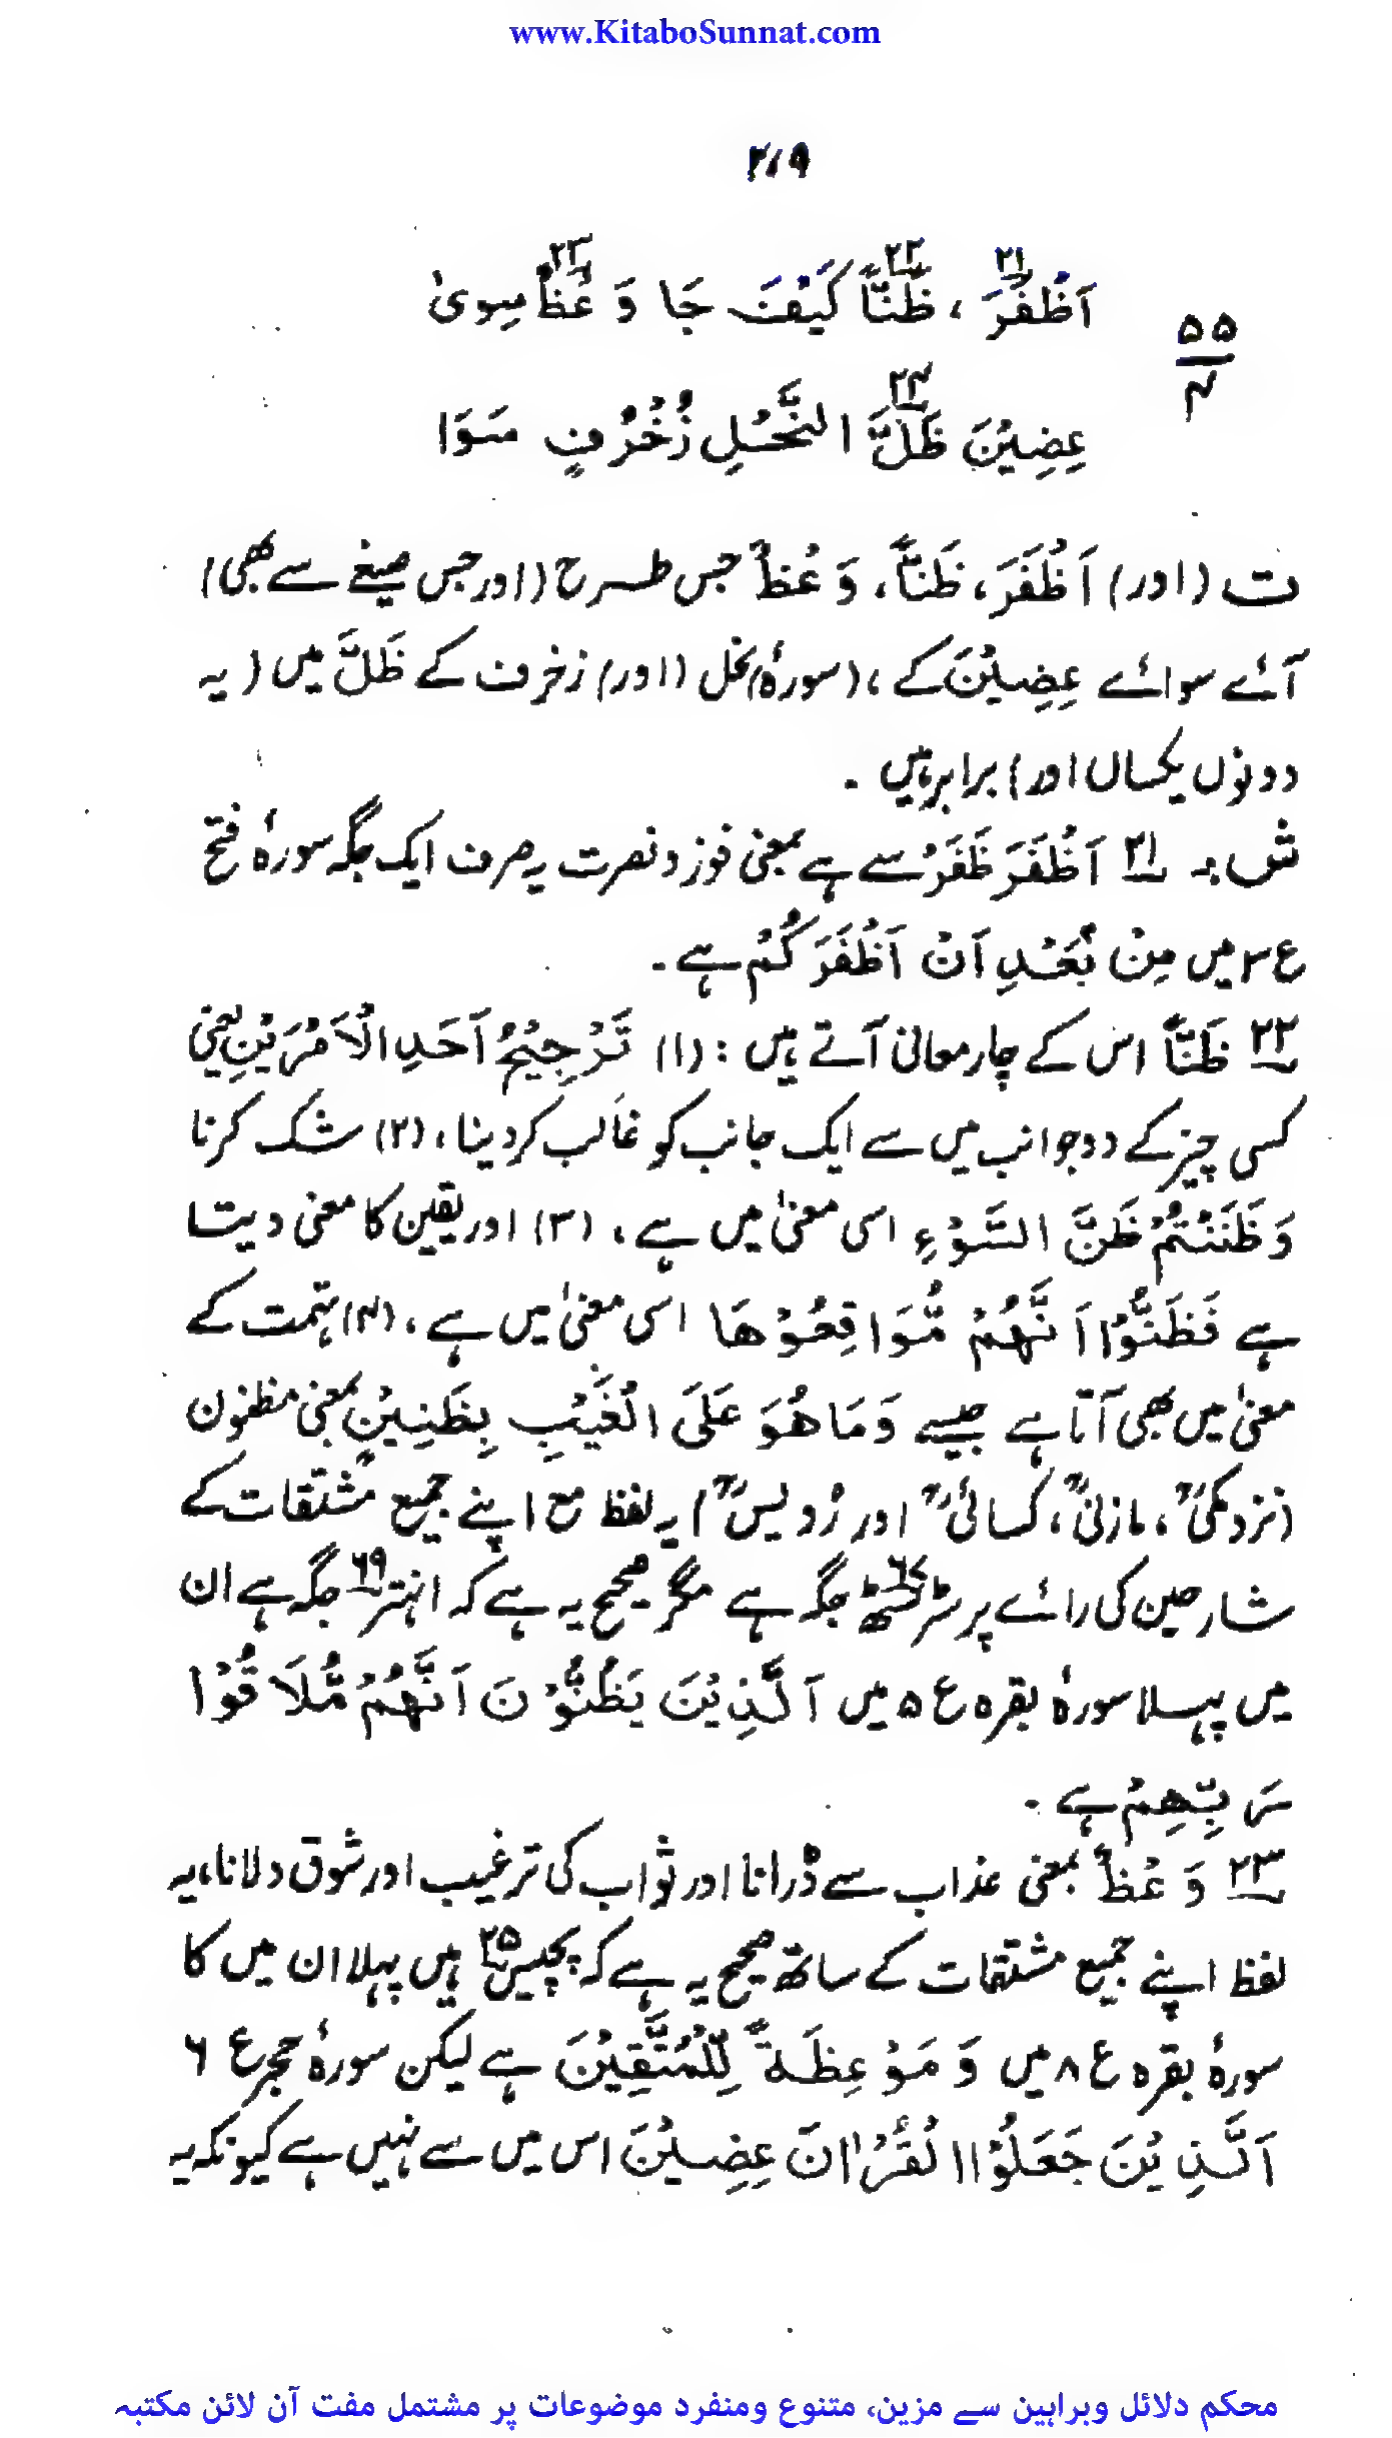 www.KitaboSunnat.com
۲۱۹
۵۵
۴
اَظْفَرَ ۲۱ ، ظَنًّا ۲۲ كَيْفَ جَا وَ عْظٌ ۲۳ سِوىٰ
عِضِيْنَ ظَلَّ ۲۴ النَّحْلِ زُخْرُفٍ سَوَا
ت (اور) اَظْفَرَ، ظَنًّا، وَعْظٌ جس طرح (اور جس صیغے سے بھی)
آئے سوائے عِضِيْنَ کے، (سورۂ) نحل (اور) زخرف کے ظَلَّ میں (یہ
دونوں یکساں اور) برابر ہیں ۔
ش :۔ ۲۱ اَظْفَرَ ظَفَرٌ سے ہے بمعنی فوز و نصرت یہ صرف ایک جگہ سورۂ فتح
ع ۳ میں مِنْ بَعْدِ اَنْ اَظْفَرَ كُمْ ہے۔
۲۲ ظَنًّا اس کے چار معانی آتے ہیں : (۱) تَرْجِيْحُ اَحَدِ الْاَمْرَيْنِ یعنی
کسی چیز کے دو جوانب میں سے ایک جانب کو غالب کر دینا، (۲) شک کرنا
وَظَنَنْتُمْ ظَنَّ السَّوْءِ اسی معنیٰ میں ہے، (۳) اور یقین کا معنی دیتا
ہے فَظَنُّوْا اَنَّهُمْ مُّوَاقِعُوْهَا اسی معنیٰ میں ہے، (۴) تہمت کے
معنیٰ میں بھی آتا ہے جیسے وَمَا هُوَ عَلَى الْغَيْبِ بِظَنِيْنٍ بمعنی مظنون
(نزد مکیؒ، مازنیؒ، کسائیؒ اور رُویسؒ) یہ لفظ مع اپنے جمیع مشتقات کے
شارحین کی رائے پر سڑسٹھ ۶۷ جگہ ہے مگر صحیح یہ ہے کہ انہتر ۶۹ جگہ ہے ان
میں پہلا سورۂ بقرہ ع ۵ میں اَلَّذِيْنَ يَظُنُّوْنَ اَنَّهُمْ مُّلَاقُوْا
رَبِّهِمْ ہے ۔
۲۳ وَعْظٌ بمعنی عذاب سے ڈرانا اور ثواب کی ترغیب اور شوق دلانا، یہ
لفظ اپنے جمیع مشتقات کے ساتھ صحیح یہ ہے کہ پچیس ۲۵ ہیں پہلا ان میں کا
سورۂ بقرہ ع ۸ میں وَ مَوْعِظَةً لِّلْمُتَّقِيْنَ ہے لیکن سورۂ حجر ع ۶
اَلَّذِيْنَ جَعَلُوْا الْقُرْاٰنَ عِضِيْنَ اس میں سے نہیں ہے کیونکہ یہ
محکم دلائل وبراہین سے مزین، متنوع ومنفرد موضوعات پر مشتمل مفت آن لائن مکتبہ